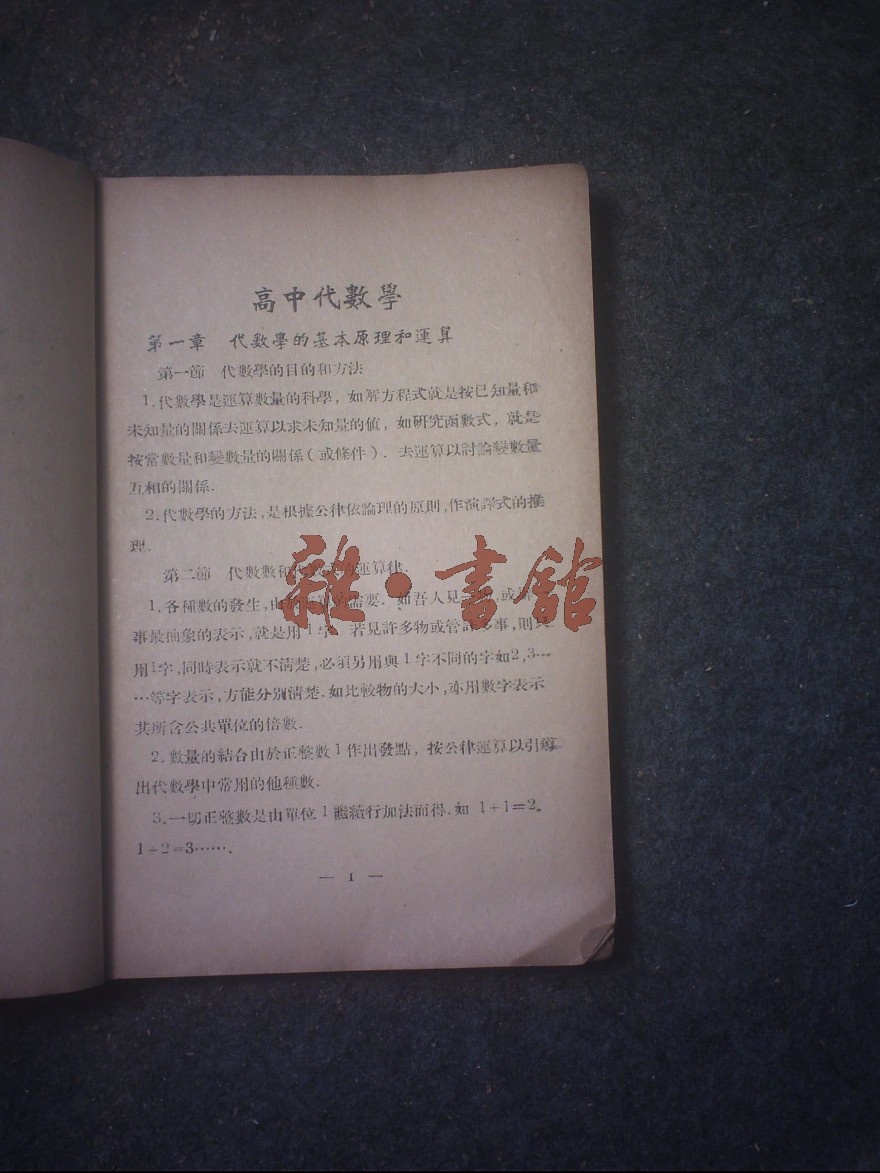 高中代數學
第一章 代數學的基本原理和運算
第一節 代數學的目的和方法
1.代數學是運算數量的科學，如解方程式就是按已知量和
未知量的關係去運算以求未知量的値，如研究函數式，就是
按常數量和變數量的關係（或條件）．去運算以討論變數量
互相的關係．
2.代數學的方法，是根據公律依論理的原則，作演譯式的推
理．
第二節 代數數和代 運算律．
雜·書館
1.各種數的發生，由於運算的需要．如吾人見 物，或
事最抽象的表示，就是用1字 若見許多物或管許多事，則只
用1字，同時表示就不淸楚，必須另用與1字不同的字如2,3…
…等字表示，方能分別淸楚．如比較物的大小，亦用數字表示
其所含公共單位的倍數．
2.數量的結合由於正整數1作出發點，按公律運算以引導
出代數學中常用的他種數．
3.一切正整數是由單位1繼續行加法而得．如 1+1=2。
1+2=3……．
— 1 —